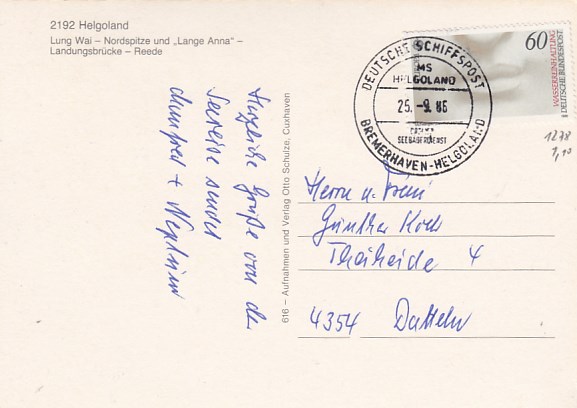 2192 Helgoland
Lung Wai – Nordspitze und „Lange Anna" –
Landungsbrücke – Reede
Herzliche Grüße von der
Seereise sendet
Manfred +
616 – Aufnahmen und Verlag Otto Schulze, Cuxhaven
DEUTSCHE SCHIFFSPOST
MS
HELGOLAND
25. -9. 86
SEEBÄDERDIENST
BREMERHAVEN-HELGOLAND
60
WASSERREINHALTUNG
DEUTSCHE BUNDESPOST
1278
1,10
Herrn u. Frau
Günther Koch
4
4354 Datteln